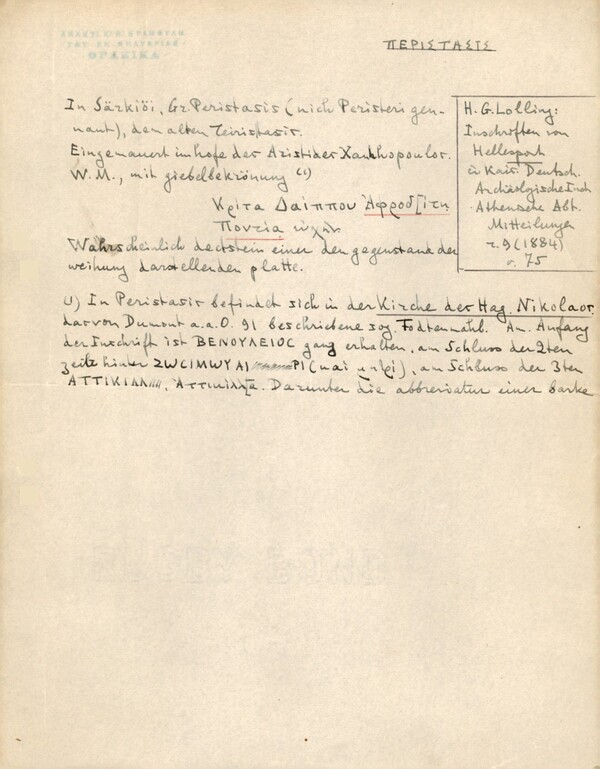 ΘΡΑΚΙΚΑ
ΠΕΡΙΣΤΑΣΙΣ
In Särkiöi, Gr. Peristasis (nich Peristeri gen-
nant), den alten Teiristasis.
Eingemauert im hofe der Aristides Xanthopoulos.
W.M., mit giebelbekrönung (1)
Κρίτα Δαίππου Ἀφροδίτη
Ποντία εὐχήν
Wahrscheinlich deckstein einer den gegenstand der
weihung darstellenden platte.
H.G. Lolling:
Inschriften von
Hellespont
in Kais. Deutsch.
Archäologische Inst
Athenische Abt.
Mitteilungen
τ. 9 (1884)
σ. 75
(1) In Peristasis befindet sich in der Kirche der Hag. Nikolaos
das von Dumont a.a.O. 91 beschriebene sog. Todtenmahl. Am Anfang
der Inschrift ist ΒΕΝΟΥΛΕΙΟC ganz erhalten, am Schluss der 2ten
zeile hinter ZWCIMWYAI PI (και), am Schluss der 3ten
ΑΤΤΙΚΙΛΛ. Darunter die abbreviatur einer barke